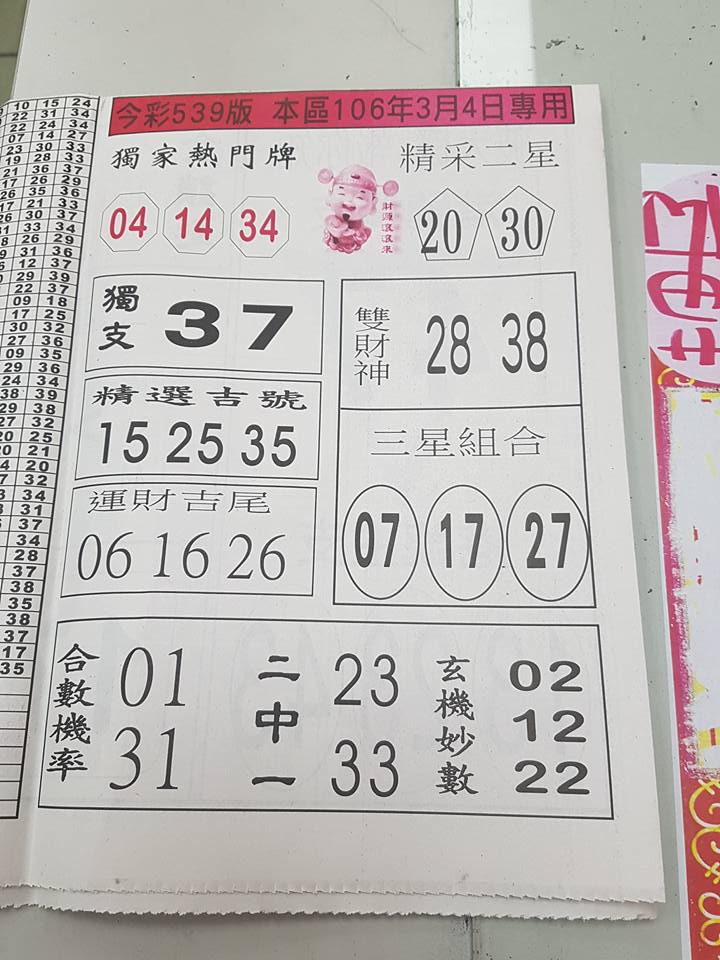 今彩539版 本區106年3月4日專用
獨家熱門牌
04 14 34
財源滾滾來
精采二星
20 30
獨支
37
雙財神
28 38
精選吉號
15 25 35
三星組合
07 17 27
運財吉尾
06 16 26
合數機率
01
31
二中一
23
33
玄機妙數
02
12
22
10 15 24
22 31 34
22 24 34
07 14 27
23 30 33
19 28 33
21 36 37
17 26 29
26 35 36
17 21 33
26 30 37
33 34
18 26 29
31 36
12 37
29 39
22 37
09 18
17 25
30 32
27 36
09 35
29 36
24 34
38 39
29 38
27 32
20 25
20 21
20
32
34
31
37
34
28
37
38
35
38
37
17
35